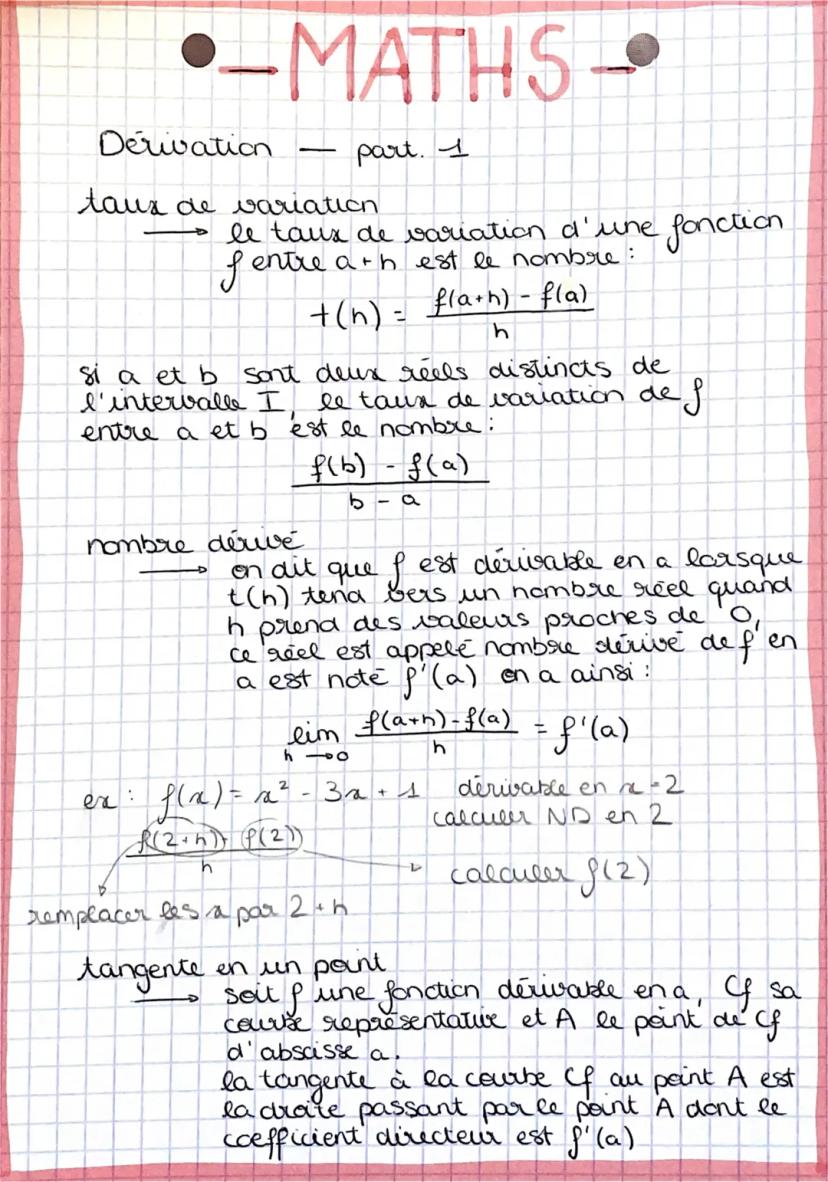 - MATHS -
Dérivation — part. 1
taux de variation
→ le taux de variation d'une fonction
f entre a + h est le nombre :
t(h) = f(a+h) - f(a) / h
si a et b sont deux réels distincts de
l'intervalle I, le taux de variation de f
entre a et b est le nombre :
f(b) - f(a) / b - a
nombre dérivé
→ on dit que f est dérivable en a lorsque
t(h) tend vers un nombre réel quand
h prend des valeurs proches de 0,
ce réel est appelé nombre dérivé de f en
a est noté f'(a) on a ainsi :
lim h→0 f(a+h)-f(a) / h = f'(a)
ex : f(x) = x² - 3x + 1 dérivable en x = 2
calculer ND en 2
f(2+h) - f(2) / h
calculer f(2)
remplacer les x par 2 + h
tangente en un point
→ soit f une fonction dérivable en a, Cf sa
courbe représentative et A le point de Cf
d'abscisse a.
la tangente à la courbe Cf au point A est
la droite passant par le point A dont le
coefficient directeur est f'(a)